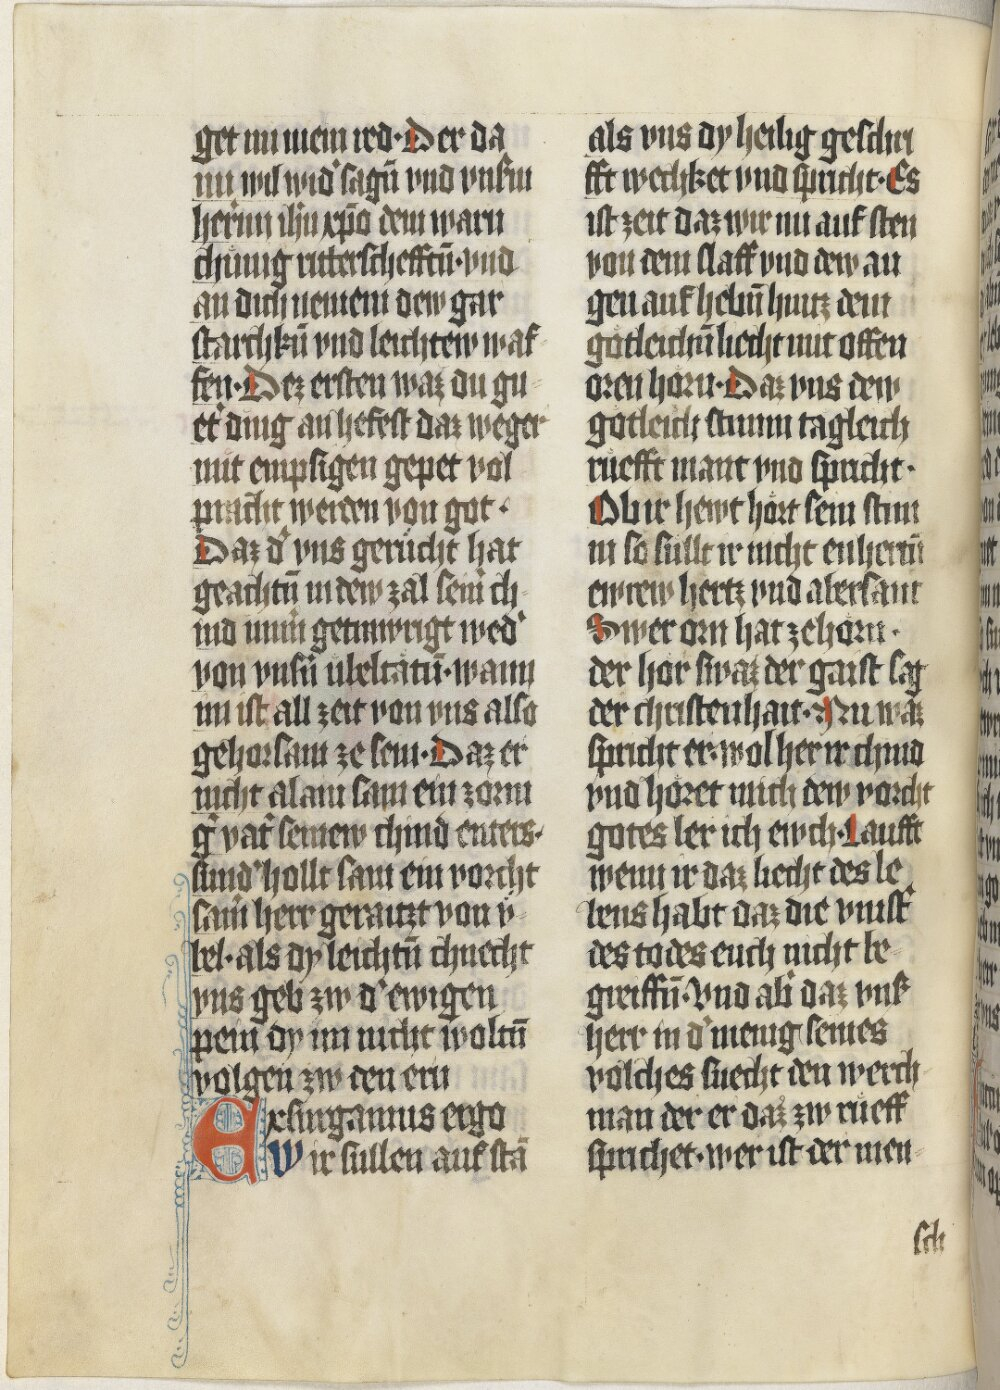 get nu mein red · Der da
nu wil wid͛ sagn̄ vnd vnſm
herīm ih̄u xp̄o dem warn
chunig ritterschefftn̄ · vnd
an dich nemem dew gar
starchkn̄ vnd leichtew waf
fen · Dez ersten waz du gu
et͛ ding an hefest daz weger
mit empsigen gepet vol
pracht werden von got ·
Daz d͛ vns gerucht hat
geachtn̄ in dew zal sein͛ ch
ind nim͛ getrawrigt w͛ed͛
von vnsn̄ vbeltatn̄ · wann
im ist all zeit von vns also
gehorsam ze sein · Daz er
nicht alain sam ein zorni
g͛ vat͛ seinew chind enters ·
sund͛ hollt sam ein vorcht
sam͛ herr geraitzt von v
bel · als dy leichtn̄ chnecht
vns geb zw d͛ ewigen
pein dy im nicht woltn̄
volgen zw den ern
Exsurgamus ergo
Wir sullen auf sta
als vns dy heilig geschri
fft wechket vnd spricht · Es
ist zeit daz wir nu auf sten
von dem slaff vnd dew au
gen auf hebn̄ hintz dem
gotleichn̄ liecht mit offen
oren horn · Daz vns dew
gotleich stimm tagleich
ruefft mant vnd spricht ·
Ob ir hewt hort sein stim
m so sullt ir nicht enhertn̄
ewrew hertz vnd abersamt
Swer orn hat ze horn ·
der hor swaz der gaist sag
der christenhait · Nu waz
spricht er · wol her ir chind
vnd horet mich dew vorcht
gotes ler ich ewch · Laufft
wenn ir daz liecht des le
bens habt daz die vinst͛
des todes euch nicht be
greiffn̄ · Vnd ab͛ daz vns͛
herr in d͛ menig seines
volches suecht den werch
man der er daz zw rueff
sprichet · wer ist der men
sch